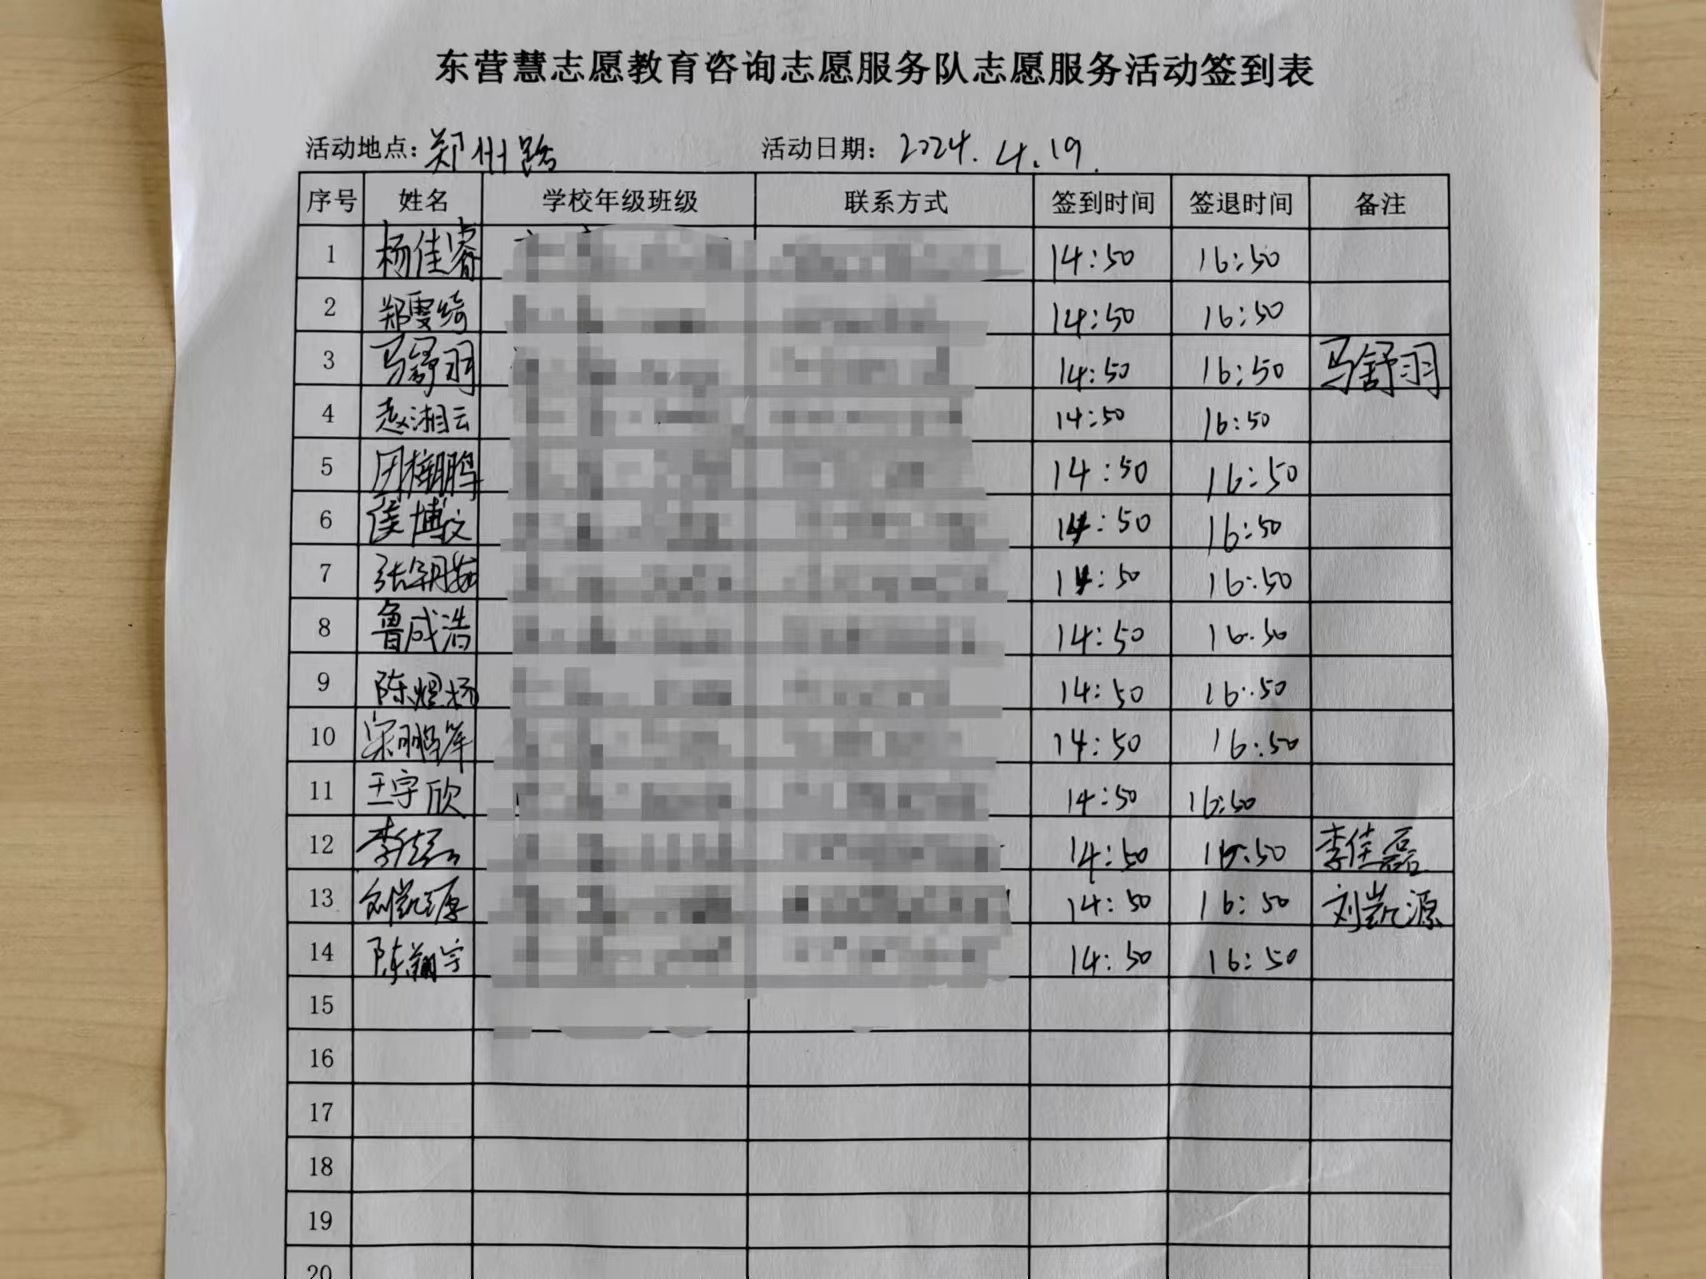 东营慧志愿教育咨询志愿服务队志愿服务活动签到表
活动地点：郑州路 活动日期：2024.4.19.
序号 姓名 学校年级班级 联系方式 签到时间 签退时间 备注
1 杨佳睿 14:50 16:50
2 郑雯绮 14:50 16:50
3 马舒羽 14:50 16:50 马舒羽
4 赵湘云 14:50 16:50
5 14:50 16:50
6 侯博文 14:50 16:50
7 14:50 16:50
8 鲁成浩 14:50 16:50
9 陈煜杨 14:50 16:50
10 14:50 16:50
11 王宇欣 14:50 16:50
12 李佳磊 14:50 16:50 李佳磊
13 刘凯源 14:50 16:50 刘凯源
14 陈翔宇 14:50 16:50
15
16
17
18
19
20